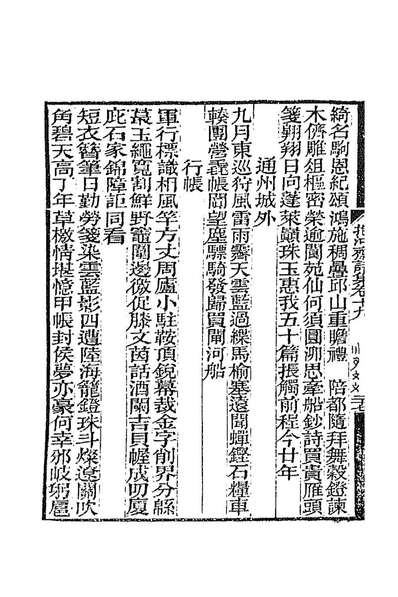 綺名駒恩紀頌鴻施稠疊邱山重瞻禮 陪都隨拜舞穀鐙諫
木儕雕俎樞密榮逾閬苑仙何須圓淵思牽船鈔詩買貴雁頭
箋翔翔日向蓬萊巔珠玉惠我五十篇振觸前程今廿年
通州城外
九月東巡狩風雷雨霽天雲藍過繰馬榆塞遠聞蟬鏗石糧車
轃團營毳帳閙望塵驃騎發歸買閘河船
行帳
軍行標識相風竿方丈周廬小駐鞍頂銳幕裁金字削界分縣
蕝玉繩寬割鮮野竈闢邊徼促膝文茵話酒闌吉貝幄成叨廈
庇石家錦障詎同看
短衣簪筆日勤勞箋染雲藍影四遭陸海龍鐙珠斗燦遼關吹
角碧天高丁年草檄情堪憶甲帳封侯夢亦豪何幸邠岐躬扈